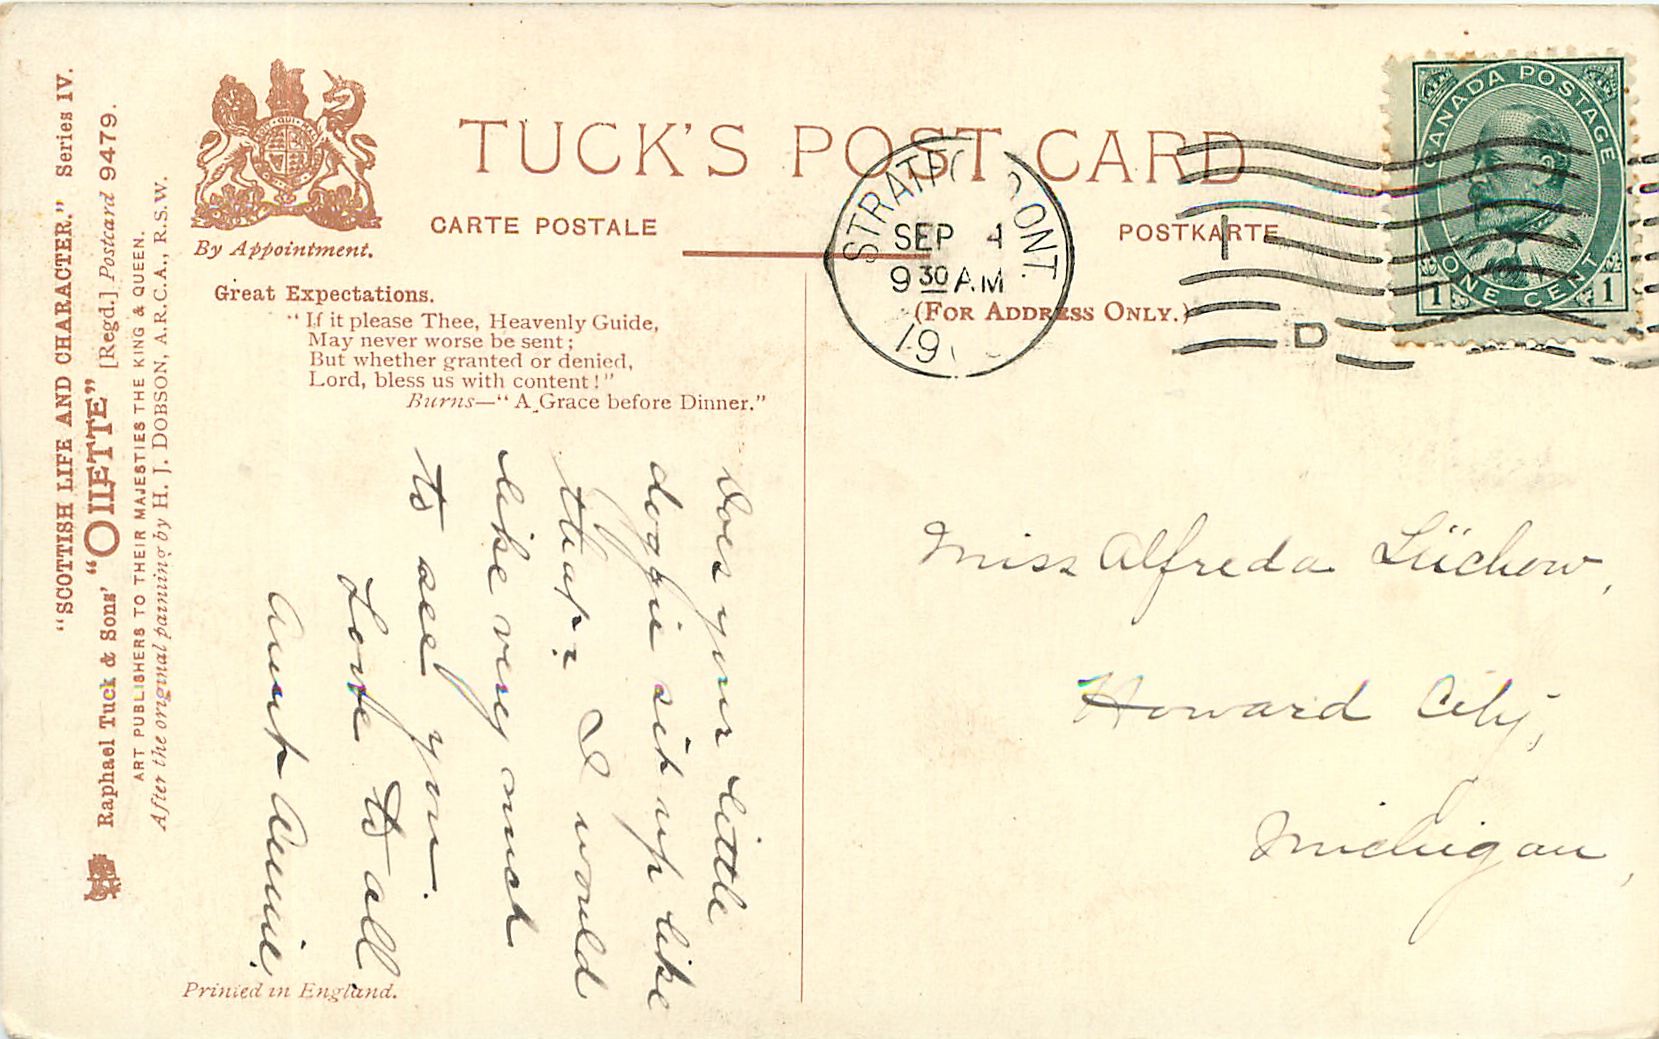 "SCOTTISH LIFE AND CHARACTER." Series IV.
Raphael Tuck & Sons' "OILETTE" [Regd.] Postcard 9479.
ART PUBLISHERS TO THEIR MAJESTIES THE KING & QUEEN.
After the original painting by H. J. DOBSON, A.R.C.A., R.S.W.
By Appointment.
TUCK'S POST CARD
CARTE POSTALE
POSTKARTE
(FOR ADDRESS ONLY.)
Great Expectations.
"If it please Thee, Heavenly Guide,
May never worse be sent;
But whether granted or denied,
Lord, bless us with content!"
Burns—"A Grace before Dinner."
Does your little
doggie sit up like
that? I would
like very much
to see you.
Love to all
Aunt Annie.
Printed in England.
STRATFORD ONT.
SEP 4
9 30 AM
19
1
D
CANADA POSTAGE
ONE CENT
1 1
Miss Alfreda Lüchow,
Howard City,
Michigan,